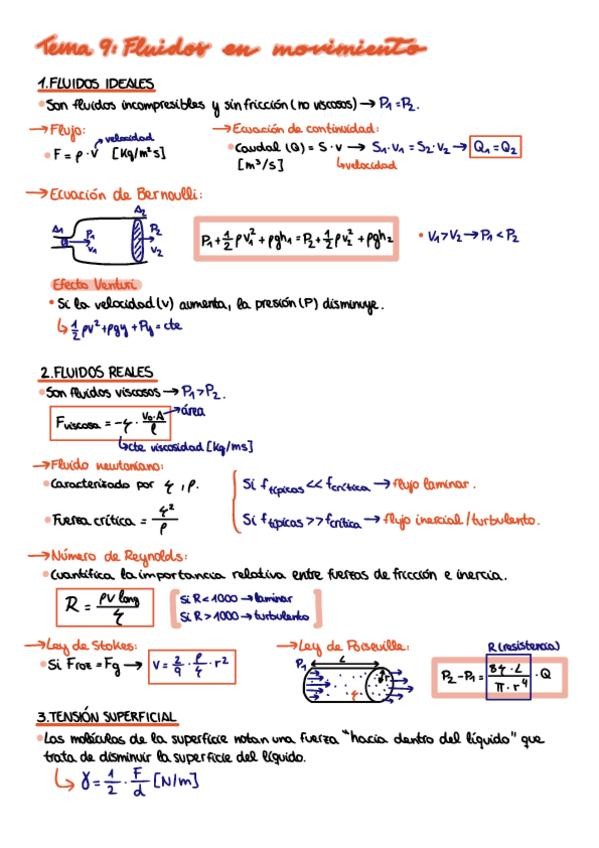 Tema 9: Fluidos en movimiento
1. FLUIDOS IDEALES
• Son fluidos incompresibles y sin fricción (no viscosos) → P₁ = P₂.
→ Flujo:
velocidad
• F = ρ · v [Kg/m²s]
→ Ecuación de continuidad:
• Caudal (Q) = S · v → S₁ · V₁ = S₂ · V₂ → Q₁ = Q₂
[m³/s] ↳ velocidad
→ Ecuación de Bernoulli:
A₁ P₁ V₁ A₂ P₂ V₂
P₁ + ½ ρ v₁² + ρgh₁ = P₂ + ½ ρ v₂² + ρgh₂
• V₁ > V₂ → P₁ < P₂
Efecto Venturi
• Si la velocidad (v) aumenta, la presión (P) disminuye.
↳ ½ ρv² + ρgy + Py = cte
2. FLUIDOS REALES
• Son fluidos viscosos → P₁ > P₂.
Fviscosa = -η · V₀·A/l → área
↳ cte viscosidad [Kg/ms]
→ Fluido newtoniano:
• Caracterizado por η, ρ.
• Fuerza crítica = η²/ρ
Si f típicas << f crítica → flujo laminar.
Si f típicas >> f crítica → flujo inercial/turbulento.
→ Número de Reynolds:
• Cuantifica la importancia relativa entre fuerzas de fricción e inercia.
R = ρv long/η
Si R < 1000 → laminar
Si R > 1000 → turbulento
→ Ley de Stokes:
• Si Froz = Fg → V = 2/9 · ρ/η · r²
→ Ley de Poiseuille:
P₁ L r η
R (resistencia)
P₂ - P₁ = 8η · L/π · r⁴ · Q
3. TENSIÓN SUPERFICIAL
• Las moléculas de la superficie notan una fuerza "hacia dentro del líquido" que
trata de disminuir la superficie del líquido.
↳ γ = 1/2 · F/d [N/m]